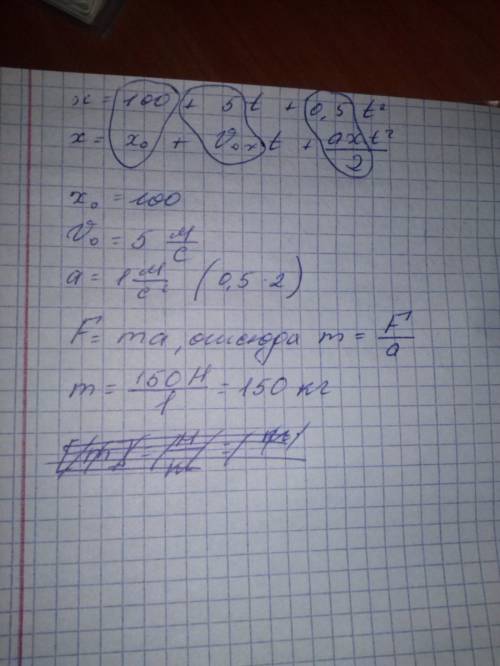 x = 100 + 5 t + 0,5 t²
x = x₀ + V₀ₓ t + aₓt²/2
x₀ = 100
V₀ = 5 м/с
a = 1 м/с² (0,5 · 2)
F = ma, отсюда m = F/a
m = 150 Н/1 = 150 кг